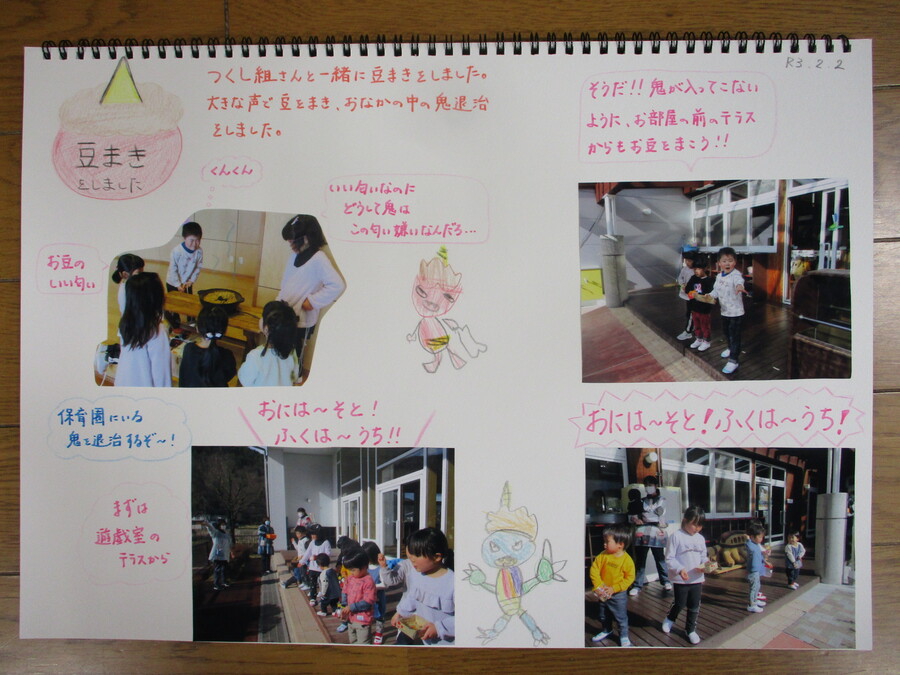 R3.2.2
つくし組さんと一緒に豆まきをしました。
大きな声で豆をまき、おなかの中の鬼退治
をしました。
豆まき
をしました
そうだ!!鬼が入ってこない
ように、お部屋の前のテラス
からもお豆をまこう!!
くんくん
いい匂いなのに
どうして鬼は
この匂い嫌いなんだろ…
お豆の
いい匂い
保育園にいる
鬼を退治するぞ〜!
おには〜そと!
ふくは〜うち!!
おには〜そと!ふくは〜うち!
まずは
遊戯室の
テラスから